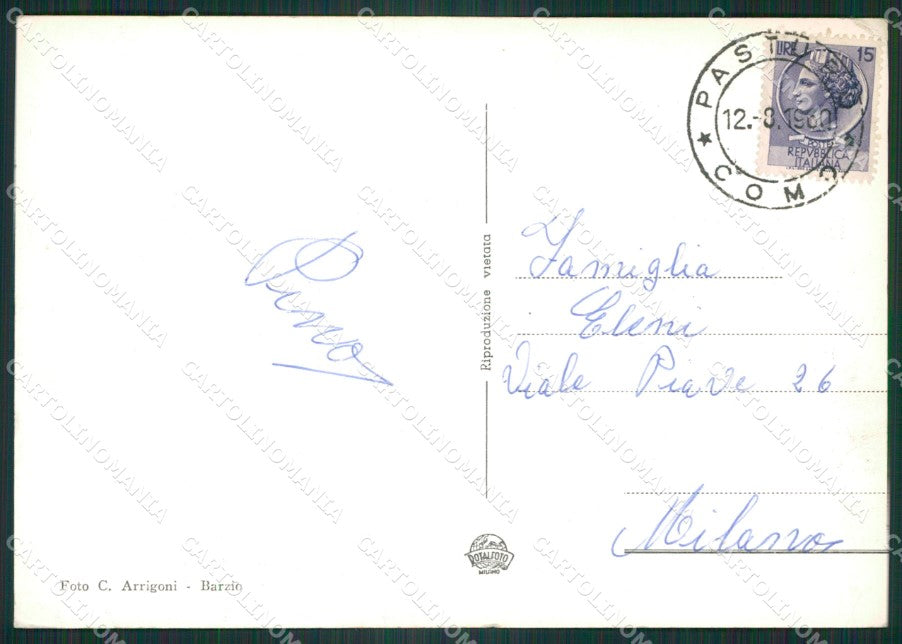 LIRE 15
PASTURO
12.-8.1960
★ COMO
POSTE
REPVBBLICA
ITALIANA
Famiglia
Eleni
Viale Piave 26
Milano
Pino
Riproduzione vietata
ROTALFOTO
MILANO
Foto C. Arrigoni - Barzio
CARTOLINOMANIA